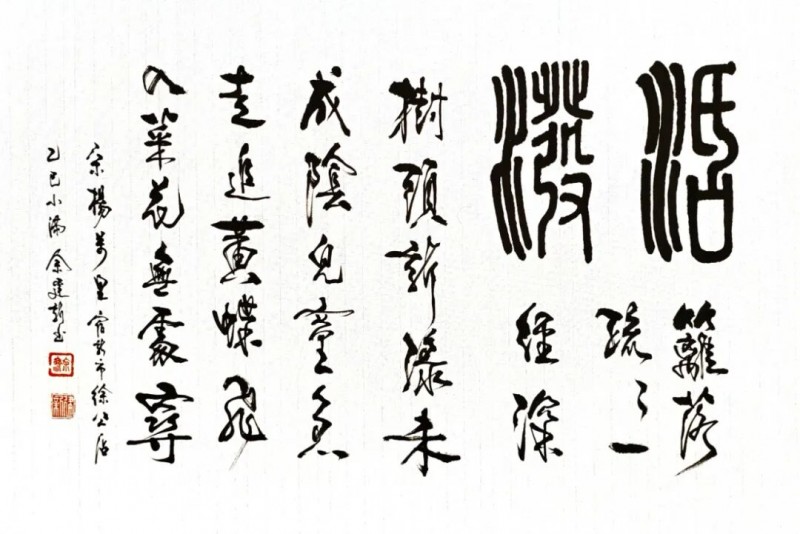 活潑
籬落
疏疏一
徑深
樹頭新綠未
成陰兒童急
走追黃蝶飛
入菜花無處尋
宋楊萬里宿新市徐公店
乙巳小滿余建新書